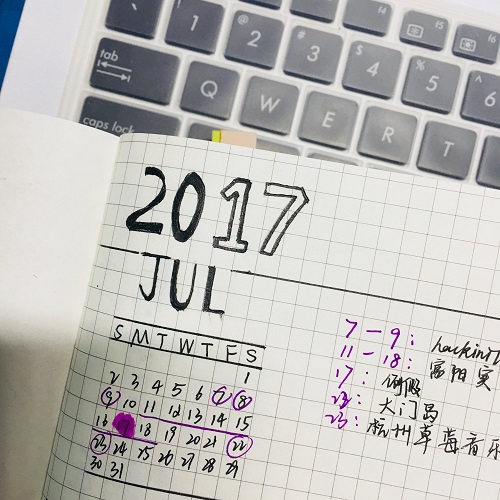 tab
caps lock
` 1 @ 2 # 3 $ 4 % 5 6
Q W E R T
2017
JUL
S M T W T F S
1
2 3 4 5 6 7 8
9 10 11 12 13 14 15
16 17 18 19 20 21 22
23 24 25 26 27 28 29
30 31
7-9:
11-18: 富阳实
17:
大门岛
23: 杭州草莓音乐